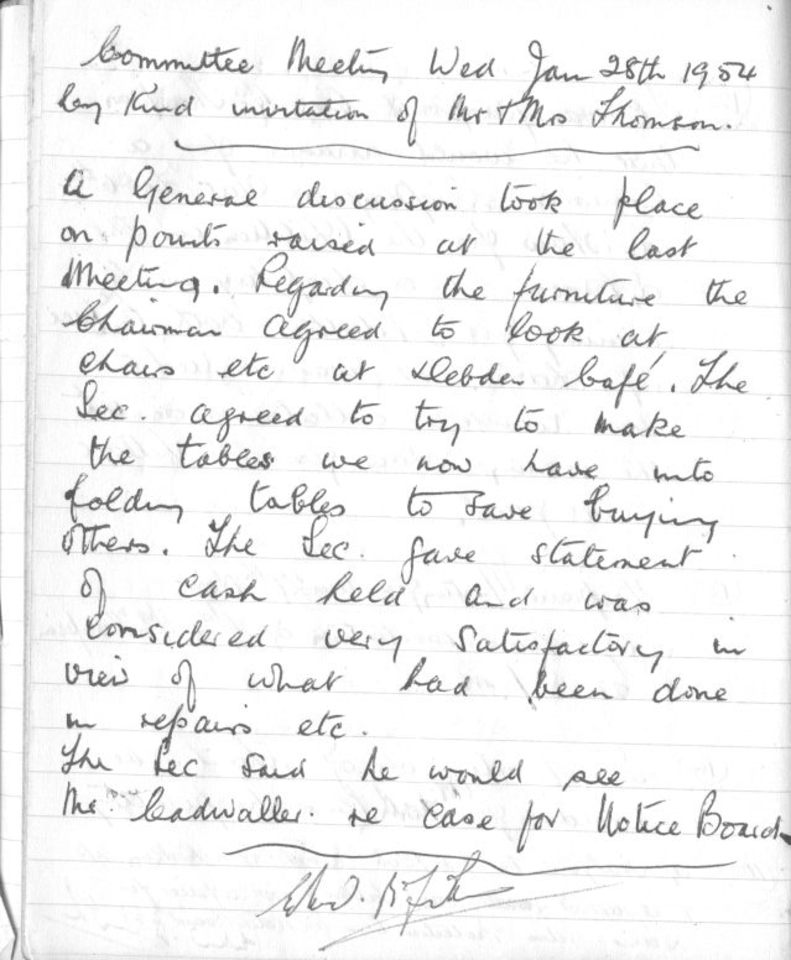 Committee Meeting Wed Jan 28th 1954
by Kind invitation of Mr & Mrs Thomson.
A General discussion took place
on points raised at the last
Meeting. Regarding the furniture the
Chairman agreed to look at,
chairs etc at Debden Café. The
Sec. agreed to try to make
the tables we now have into
folding tables to save buying
others. The Sec. gave statement
of cash held and was
considered very satisfactory in
view of what had been done
in repairs etc.
The Sec said he would see
Mr. Cadwaller. re case for Notice Board